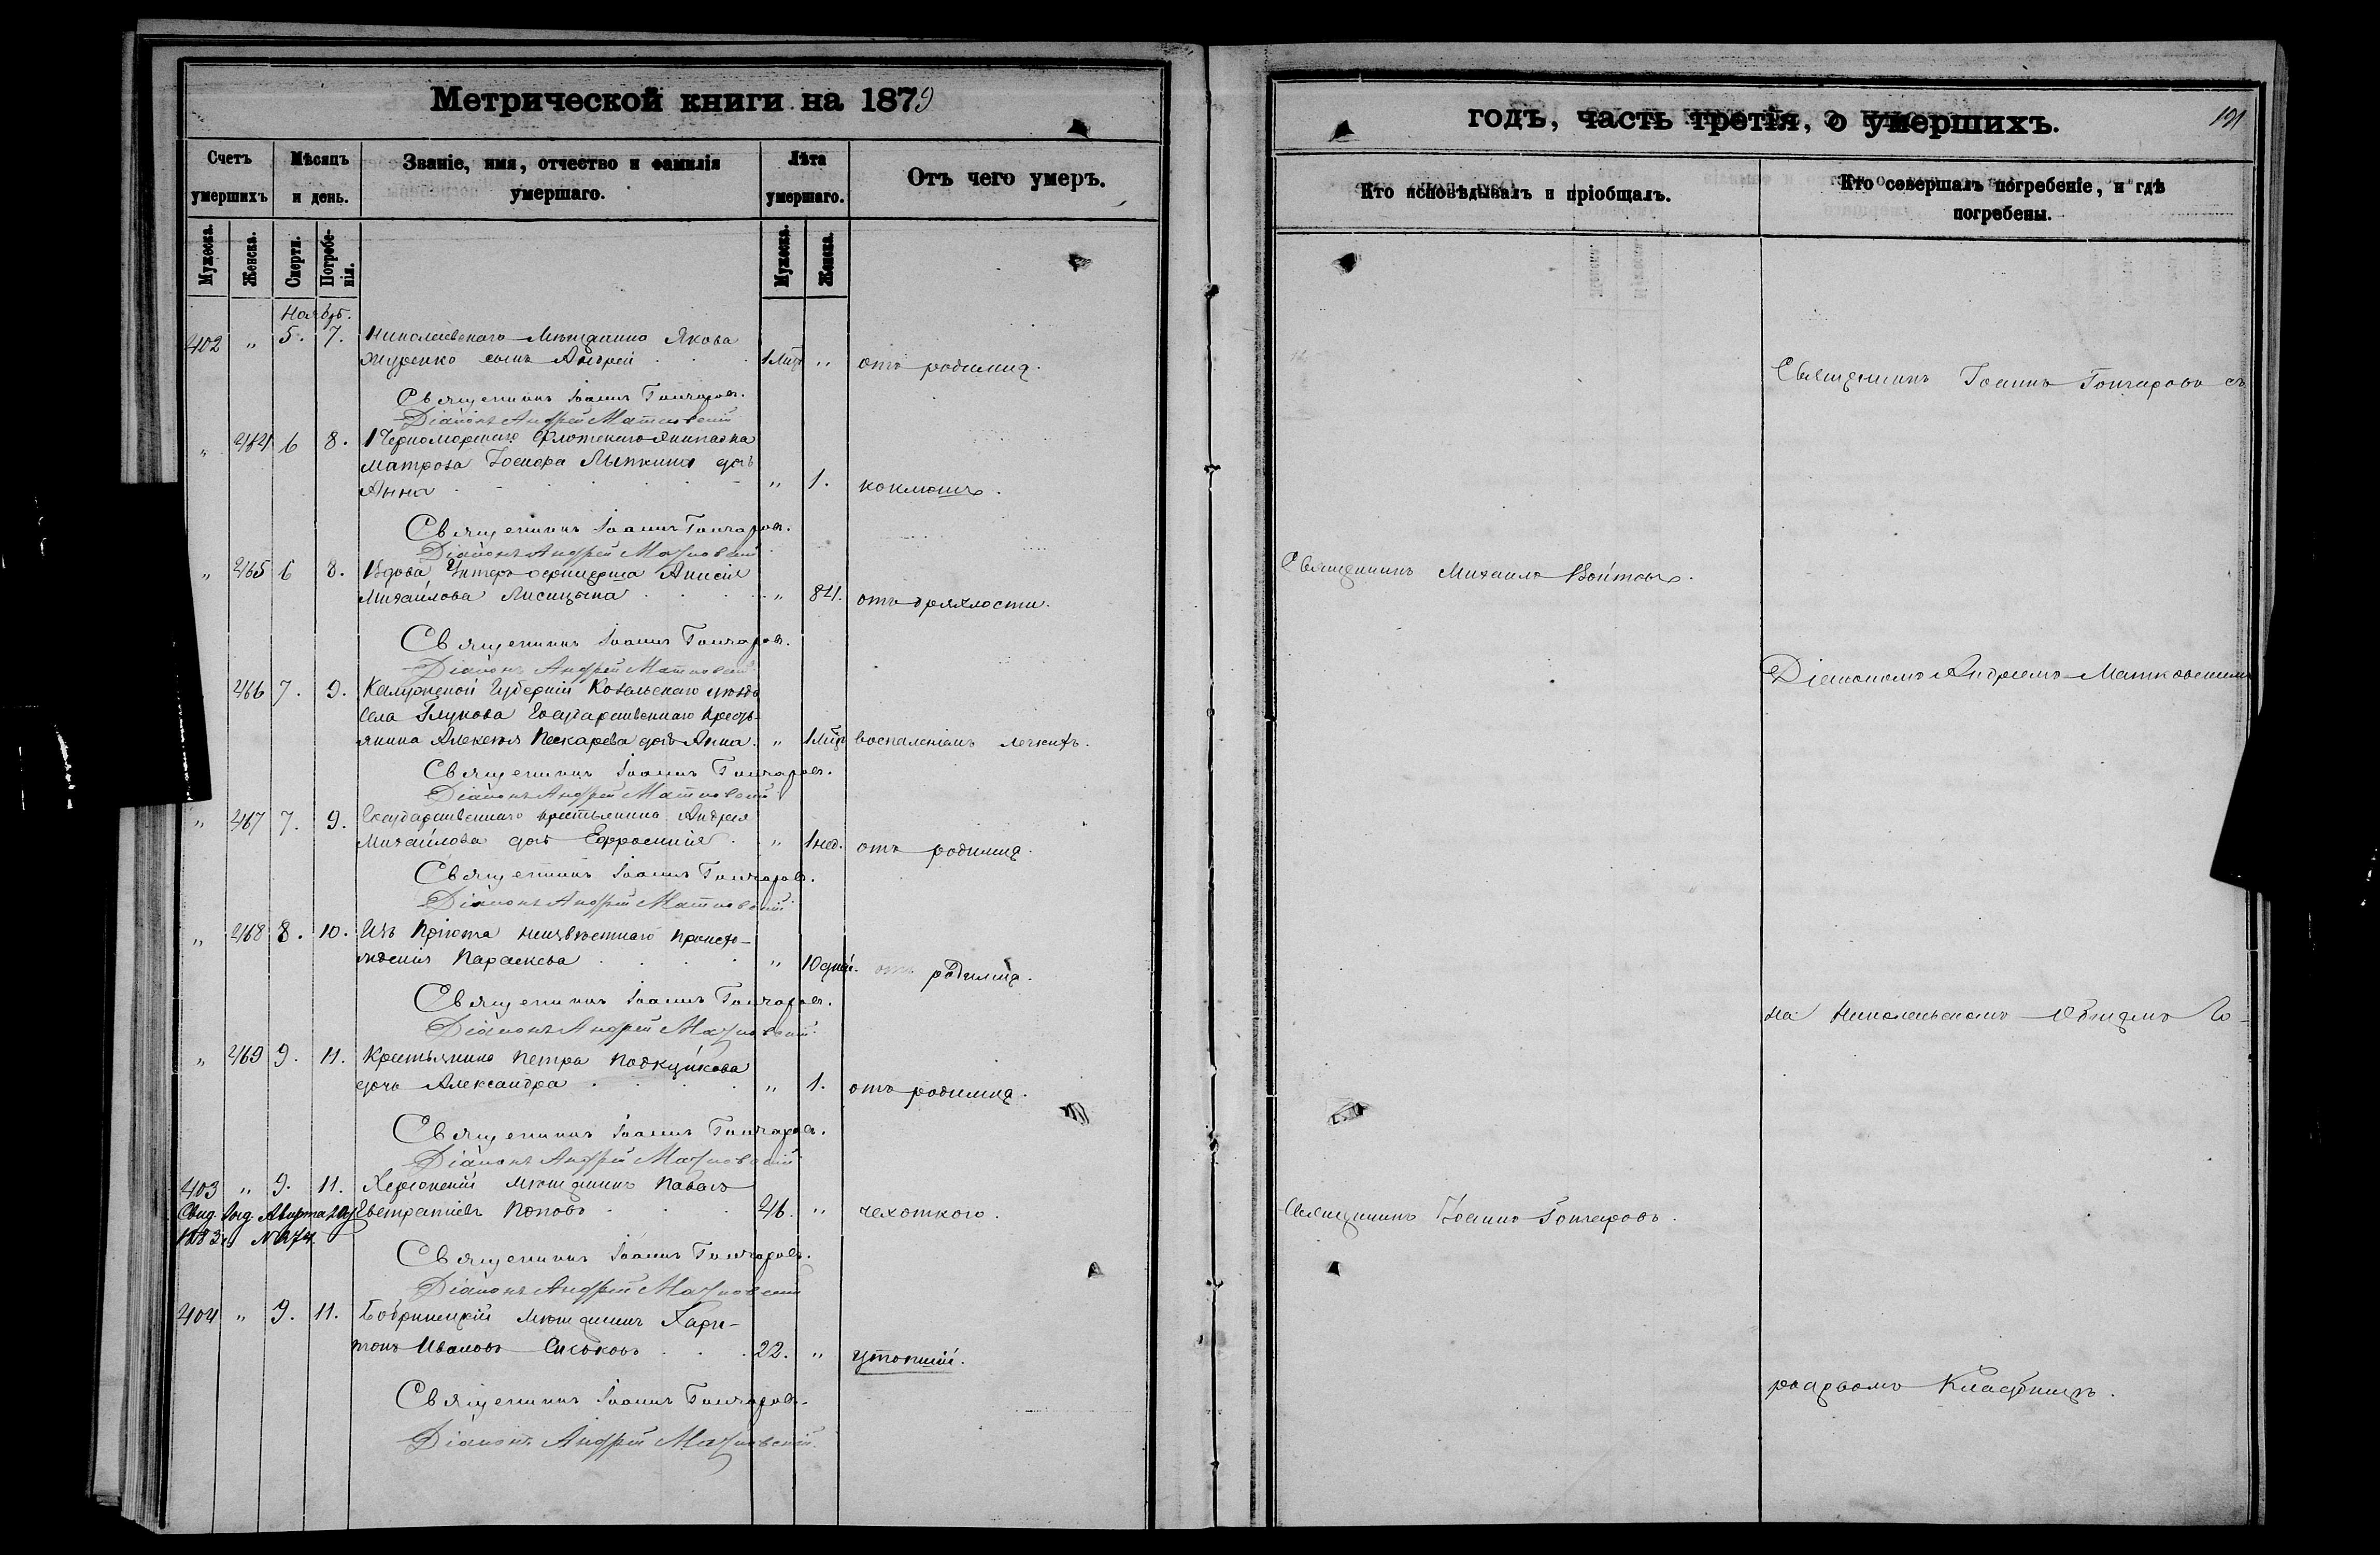 Метрической книги на 1879
Счетъ умершихъ
Мѣсяцъ и день.
Званіе, имя, отчество и фамилія умершаго.
Лѣта умершаго.
Отъ чего умеръ.
Мужеска.
Женска.
Смерти.
Погребенія.
Мужеска.
Женска.
Ноябрь.
402 " 5. 7. Николаевскаго Мѣщанина Якова
сынъ Андрей 1 Мѣс. " отъ родимца.
Священникъ Іоаннъ Гончаровъ.
Діаконъ Андрей Матковскій
" 464 6 8. Черноморскаго Флотскаго экипажа
матроза Іосифа Лыткина дочь
Анна " 1. коклюшъ.
Священникъ Іоаннъ Гончаровъ.
Діаконъ Андрей Матковскій
" 465 6 8. Вдова Унтеръ-офицерша Анисія
Михайлова Лисицына " 84. отъ дряхлости.
Священникъ Іоаннъ Гончаровъ.
Діаконъ Андрей Матковскій
466 7. 9. Калужской Губерніи Козельскаго уѣзда
села Глухова Государственнаго Крестья-
янина Алексѣя Пескарева дочь Анна. " 1 Мѣс. воспаленіемъ легкихъ.
Священникъ Іоаннъ Гончаровъ.
Діаконъ Андрей Матковскій
" 467 7. 9. Государственнаго крестьянина Андрея
Михайлова дочь Ефросинія " 1 нед. отъ родимца.
Священникъ Іоаннъ Гончаровъ.
Діаконъ Андрей Матковскій
" 468 8. 10. Изъ Пріюта неизвѣстнаго происхо-
жденія Параскева " 10 дней. отъ родимца.
Священникъ Іоаннъ Гончаровъ.
Діаконъ Андрей Матковскій
" 469 9. 11. Крестьянина Петра Подкуйкова
дочь Александра " 1. отъ родимца.
Священникъ Іоаннъ Гончаровъ.
Діаконъ Андрей Матковскій
403 " 9. 11. Херсонскій мѣщанинъ Павелъ
Евстратіевъ Поповъ 46. " чехоткою.
Священникъ Іоаннъ Гончаровъ.
Діаконъ Андрей Матковскій
404 " 9. 11. Бобринецкій мѣщанинъ Хари-
тонъ Ивановъ Сиськовъ 22. " утопшій.
Священникъ Іоаннъ Гончаровъ.
Діаконъ Андрей Матковскій
годъ, часть третія, о умершихъ.
191
Кто исповѣдывалъ и пріобщалъ.
Кто совершалъ погребеніе, и гдѣ погребены.
Священникъ Іоаннъ Гончаровъ съ
Священникъ Михаилъ Войтовъ.
Діакономъ Андреемъ Матковскимъ
на Николаевскомъ Общемъ Го-
Священникъ Іоаннъ Гончаровъ.
родскомъ Кладбищѣ.